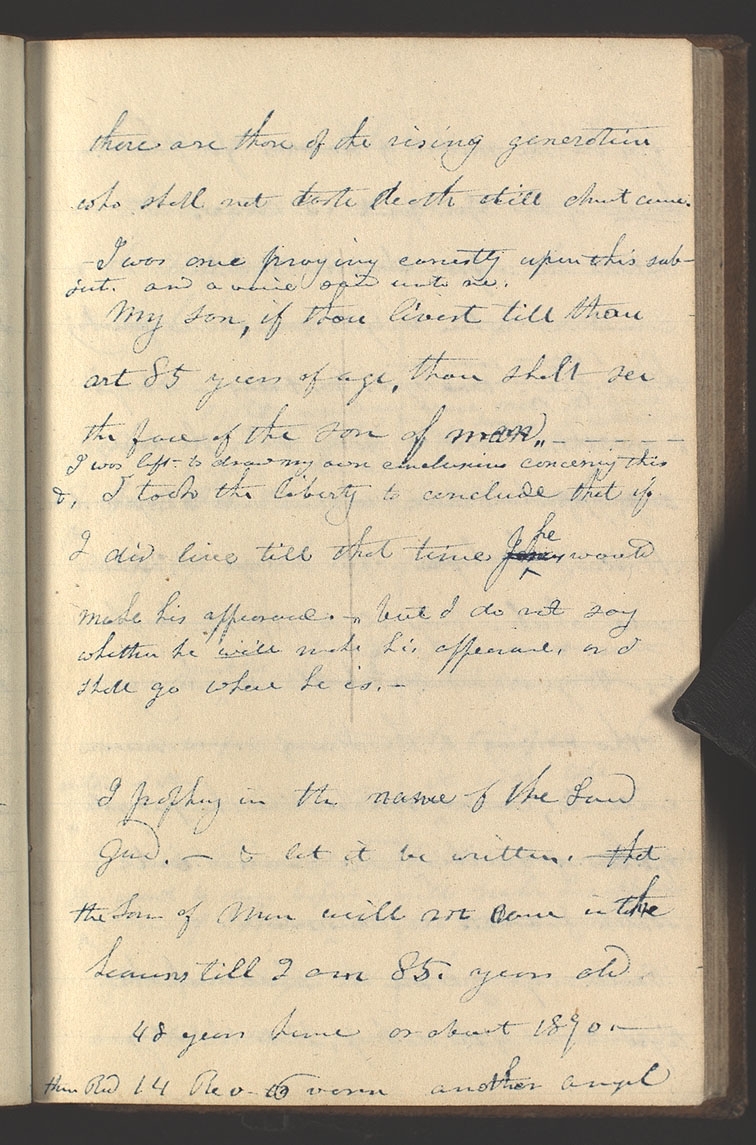 there are those of the rising generation
who shall not taste death till christ come.
– I was once praying earnestly upon this sub-
ject. and a voice said unto me.
My son, if thou livest till thou
art 85 years of age, thou shalt see
the face of the son of man„ – – – – –
I was left to draw my own conclusions concerning this
&, I took the liberty to conclude that if
I did live till that time he would
make his appearance. – but I do not say
whether he will make his appearance, or I
shall go where he is. –
I prophcy in the name of the Lord
God. – & let it be written. that
the Son of Man will not come in the
heavens till I am 85. years old
48 years hence or about 1890. –
then Red 14 Rev– 6 verse another angel